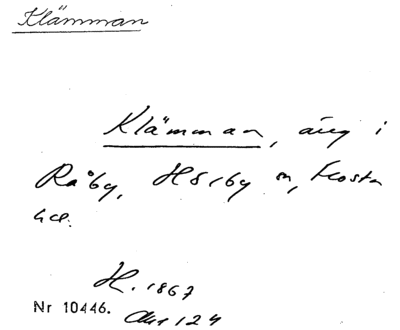 Klämman
Klämman, äng i
Råby, Hörby sn, Frosta
hd.
H. 1867
Nr 10446. Akt 124